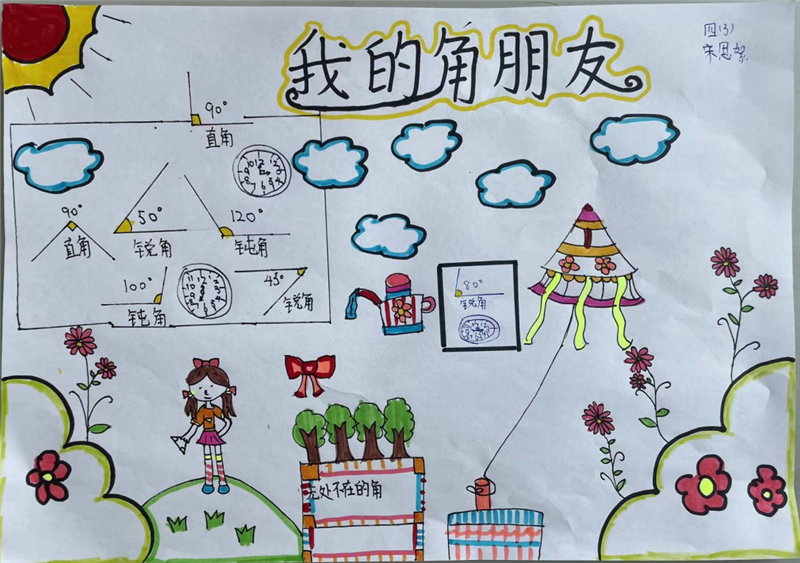 我的角朋友
四(3)
90°
直角
90°
直角
50°
锐角
120°
钝角
100°
钝角
45°
锐角
80°
钝角
无处不在的角